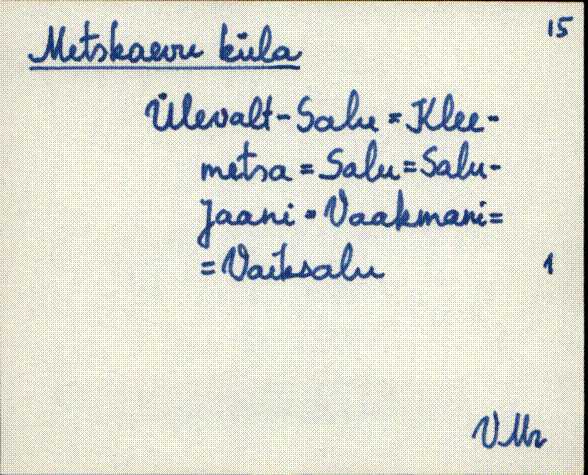 15
Metskaevu küla
Ülevalt-Salu = Klee-
metsa = Salu = Salu-
Jaani = Vaakmani =
= Vaiksalu
1
VMr